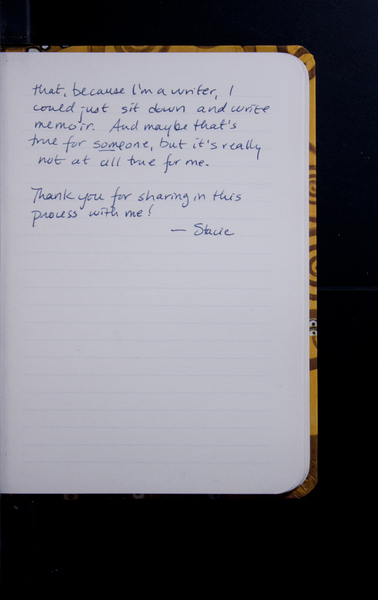 that, because I'm a writer, I
could just sit down and write
memoir. And maybe that's
true for someone, but it's really
not at all true for me.
Thank you for sharing in this
process with me!
— Stacie